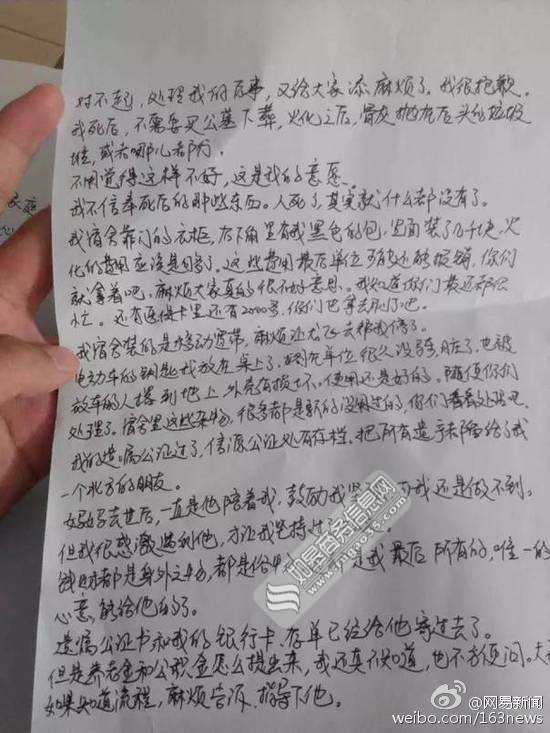 对不起，处理我的后事，又给大家添麻烦了。我很抱歉。
我死后，不需要买公墓下葬，火化之后，骨灰抛在后头的垃圾
堆，或者哪儿都行。
不用觉得这样不好，这是我的意愿。
我不信奉死后的那些东西。人死了，其实就什么都没有了。
我宿舍靠门的衣柜，左下角里有我黑色的包，里面装了几千块，火
化的费用应该是够了。这些费用最后单位可能还能报销，你们
就拿着吧，麻烦大家真的很不好意思。我知道你们最近都很
忙。还有医保卡里还有2000多，你们也拿去刷了吧。
我宿舍装的是移动宽带，麻烦让龙飞去帮我停了。
电动车的钥匙我放在桌上了，在单位很久没骑，脏了，也被
放车的人撂到地上，外壳有损坏。使用还是好的。随便你们
处理了。宿舍里这些杂物，很多都是新的没用过的，你们看着处理吧。
我的遗嘱公证过了，信源公证处有存档。把所有遗产都留给了我
一个北方的朋友。
妈妈去世后，一直是他陪着我，鼓励我坚 而我还是做不到。
但我很感激遇到他，才让我坚持过
钱财都是身外之物，都是俗 是我最后所有的，唯一的
心意能给他的了。
遗嘱公证书和我的银行卡、存单已经给他寄过去了。
但是养老金和公积金怎么提出来，我还真不知道，也不方便问。大
如果知道流程，麻烦告诉、指导下他。
家庭
心
如皋商务信息网
网易新闻
weibo.com/163news